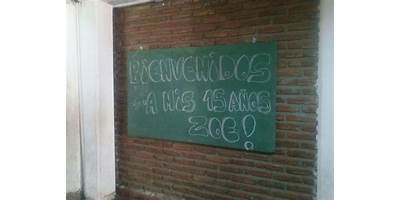 BIENVENIDOS
A MIS 15 AÑOS
ZOE!